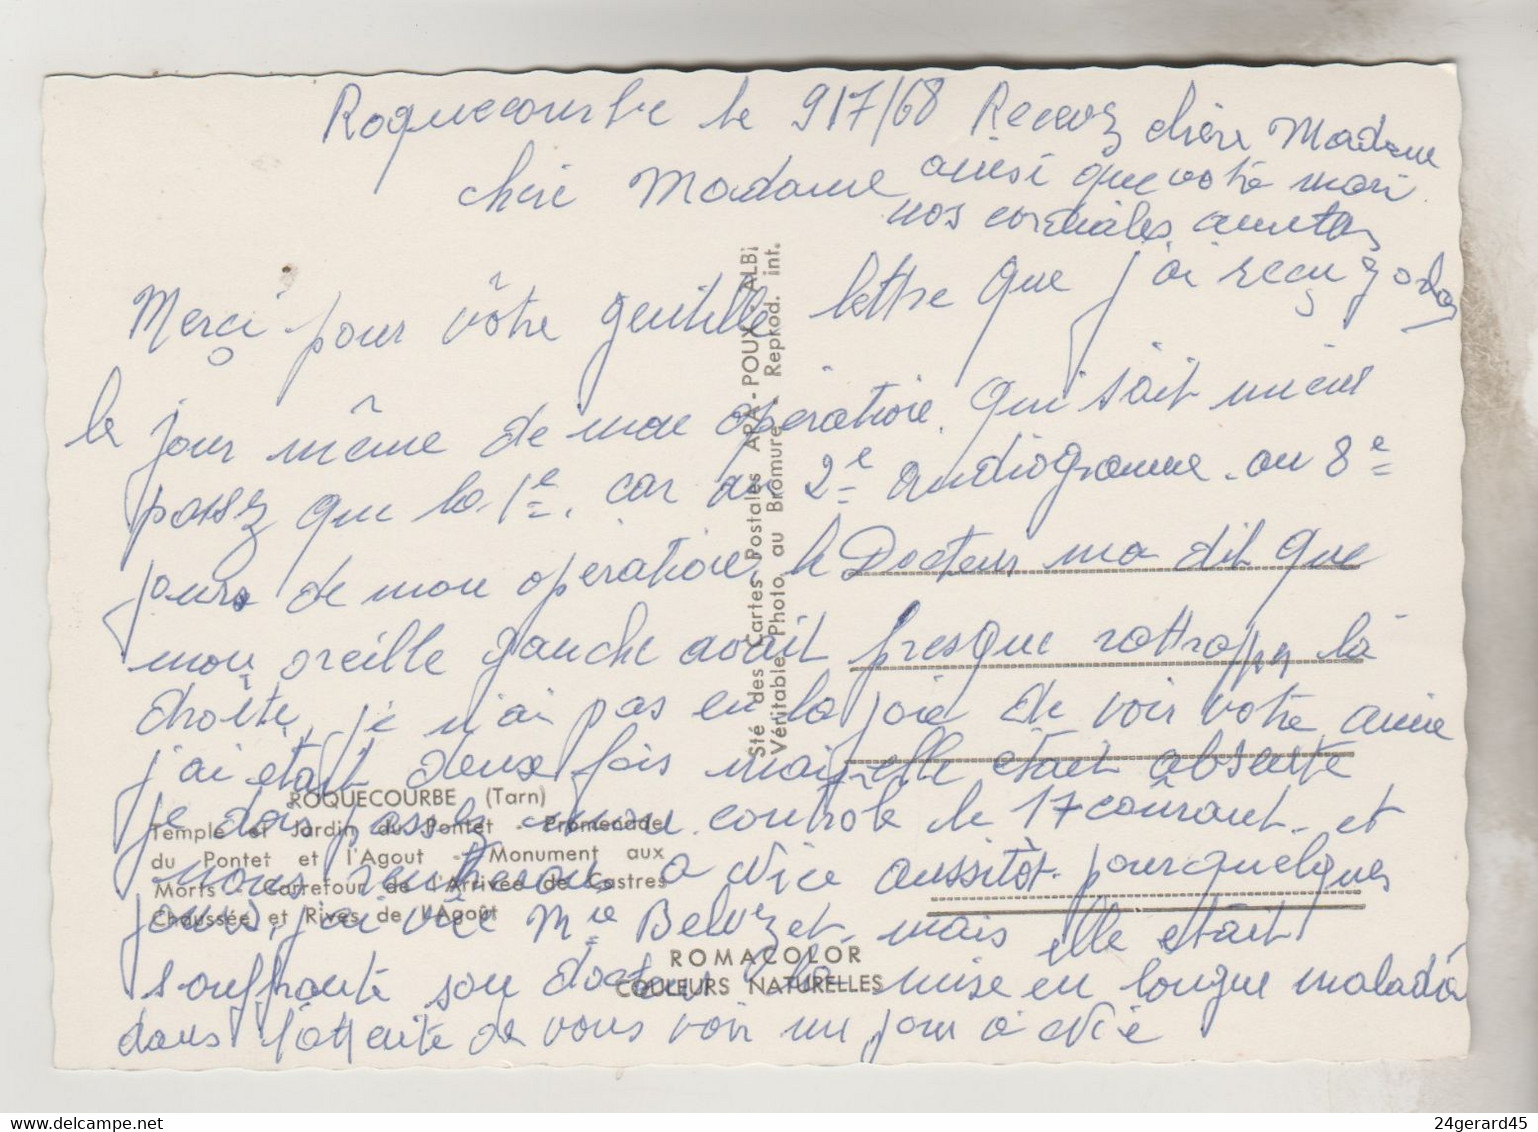 Roquecourbe le 9/7/68
chère Madame
Merci pour vôtre gentille lettre que j'ai reçu
le jour même de mon opération. Qui sait mieux
passez que la 1e. car au 2e audiogramme. au 8e
jours de mon operation le Docteur ma dit que
mon oreille gauche avait presque rattrapper la
droite, je n'ai pas eu la joie de voir votre amie
j'ai etait deux fois mais elle était absente
je dois passez mon controle le 17 coûrant. et
nous rentrerons a Nice aussitôt. pour quelques
jours, j'ai vue Mme Beluzet, mais elle etait
souffrante son docteur la mise en longue maladie
dans l'attente de vous voir un jour à Nice
Recevez chère Madame
ainsi que votre mari
nos cordiales amities
ROQUECOURBE (Tarn)
Temple et Jardin du Pontet - Promenade
du Pontet et l'Agout - Monument aux
Morts - Carrefour de l'Arrivée de Castres
Chaussée et Rives de l'Agoût
Sté des Cartes Postales ARA-POUX-ALBI
Véritable Photo au Bromure Reprod. int.
ROMACOLOR
COULEURS NATURELLES
www.delcampe.net
24gerard45